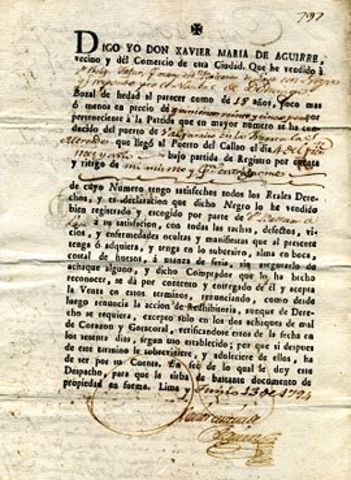 797
DIGO YO DON XAVIER MARIA DE AGUIRRE,
vecino y del Comercio de esta Ciudad. Que he vendido à
Bozal de hedad al parecer como de 18 años, poco mas
ó menos en precio de quinientos veinte y cinco pesos
perteneciente à la Partida que en mayor numero se ha con-
ducido del puerto de Valparaiso en la
que llegó al Puerto del Callao el dia 4 del
bajo partida de Registro por cuenta
y riesgo de mi mismo y
de cuyo Numero tengo satisfechos todos los Reales Dere-
chos, y es declaracion que dicho Negro lo he vendido
bien registrado y escogido por parte de
à su satisfaccion, con todas las tachas, defectos, vi-
cios, y enfermedades ocultas y manifiestas que al presente
tenga ó adquiera, y tenga en lo subcesivo, alma en boca,
costal de huesos, á usanza de feria, sin asegurarlo de
achaque alguno, y dicho Comprador que lo ha hecho
reconocer, se dá por contento y entregado de él y acepta
la Venta en estos terminos, renunciando, como desde
luego renuncia la accion de Redhibitoria, aunque de Dere-
cho se requiera, excepto solo en los dos achaques de mal
de Corazon y Gotacoral, verificandose estos de la fecha
en los sesenta dias, segun uso establecido; por que si despues
de este termino le sobreviniere, y adoleciere de ellos, ha
de ser por su Cuenta. En feé de lo qual le doy este
Despacho, para que le sirba de bastante documento de
propiedad en forma. Lima y Junio 13 de 1794